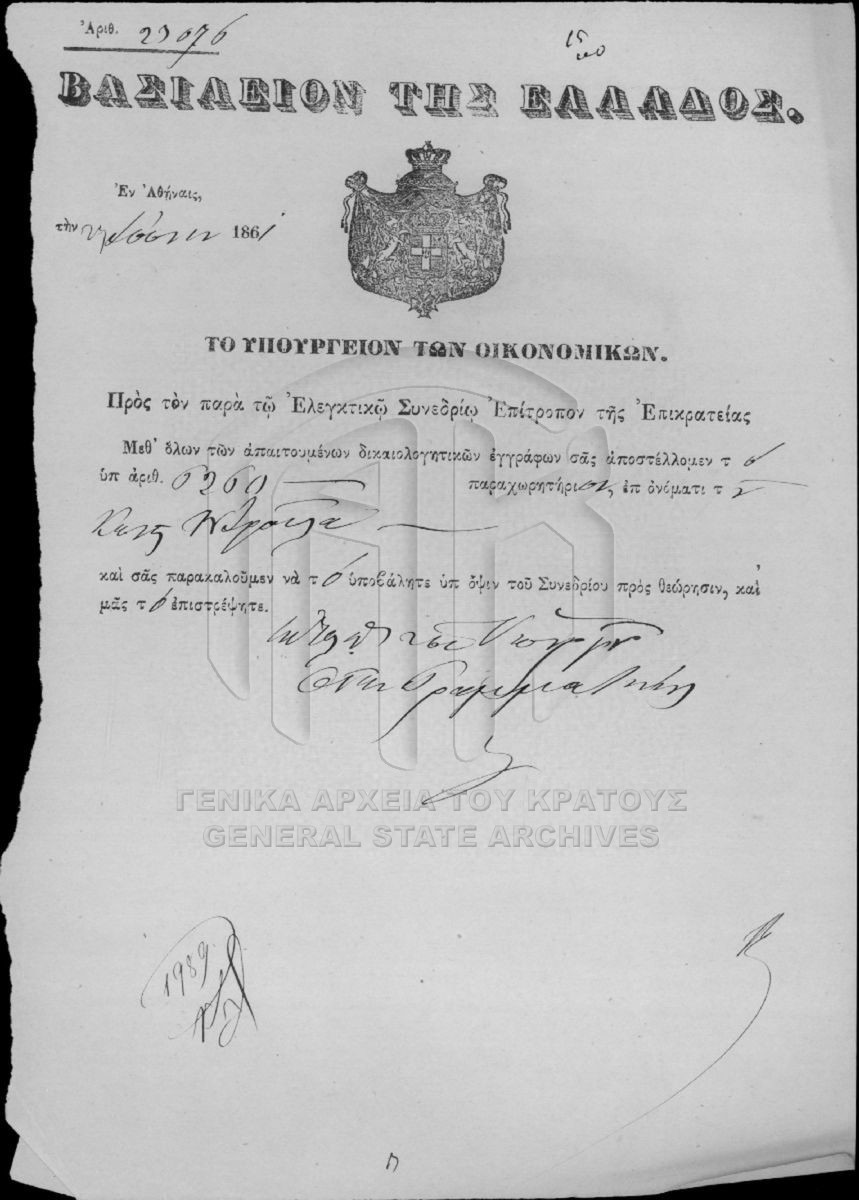 Ἀριθ. 23676
ΒΑΣΙΛΕΙΟΝ ΤΗΣ ΕΛΛΑΔΟΣ.
Ἐν Ἀθήναις,
τὴν 1861
ΤΟ ΥΠΟΥΡΓΕΙΟΝ ΤΩΝ ΟΙΚΟΝΟΜΙΚΩΝ.
Πρὸς τὸν παρὰ τῷ Ἐλεγκτικῷ Συνεδρίῳ Ἐπίτροπον τῆς Ἐπικρατείας
Μεθ' ὅλων τῶν ἀπαιτουμένων δικαιολογητικῶν ἐγγράφων σᾶς ἀποστέλλομεν τ ὸ
ὑπ ἀριθ. 6260 παραχωρητήριον, ἐπ ὀνόματι τ
καὶ σᾶς παρακαλοῦμεν νὰ τ ὸ ὑποβάλητε ὑπ ὄψιν τοῦ Συνεδρίου πρὸς θεώρησιν, καὶ
μᾶς τ ὸ ἐπιστρέψητε.
Ὁ Γραμματεὺς
ΓΕΝΙΚΑ ΑΡΧΕΙΑ ΤΟΥ ΚΡΑΤΟΥΣ
GENERAL STATE ARCHIVES
1989